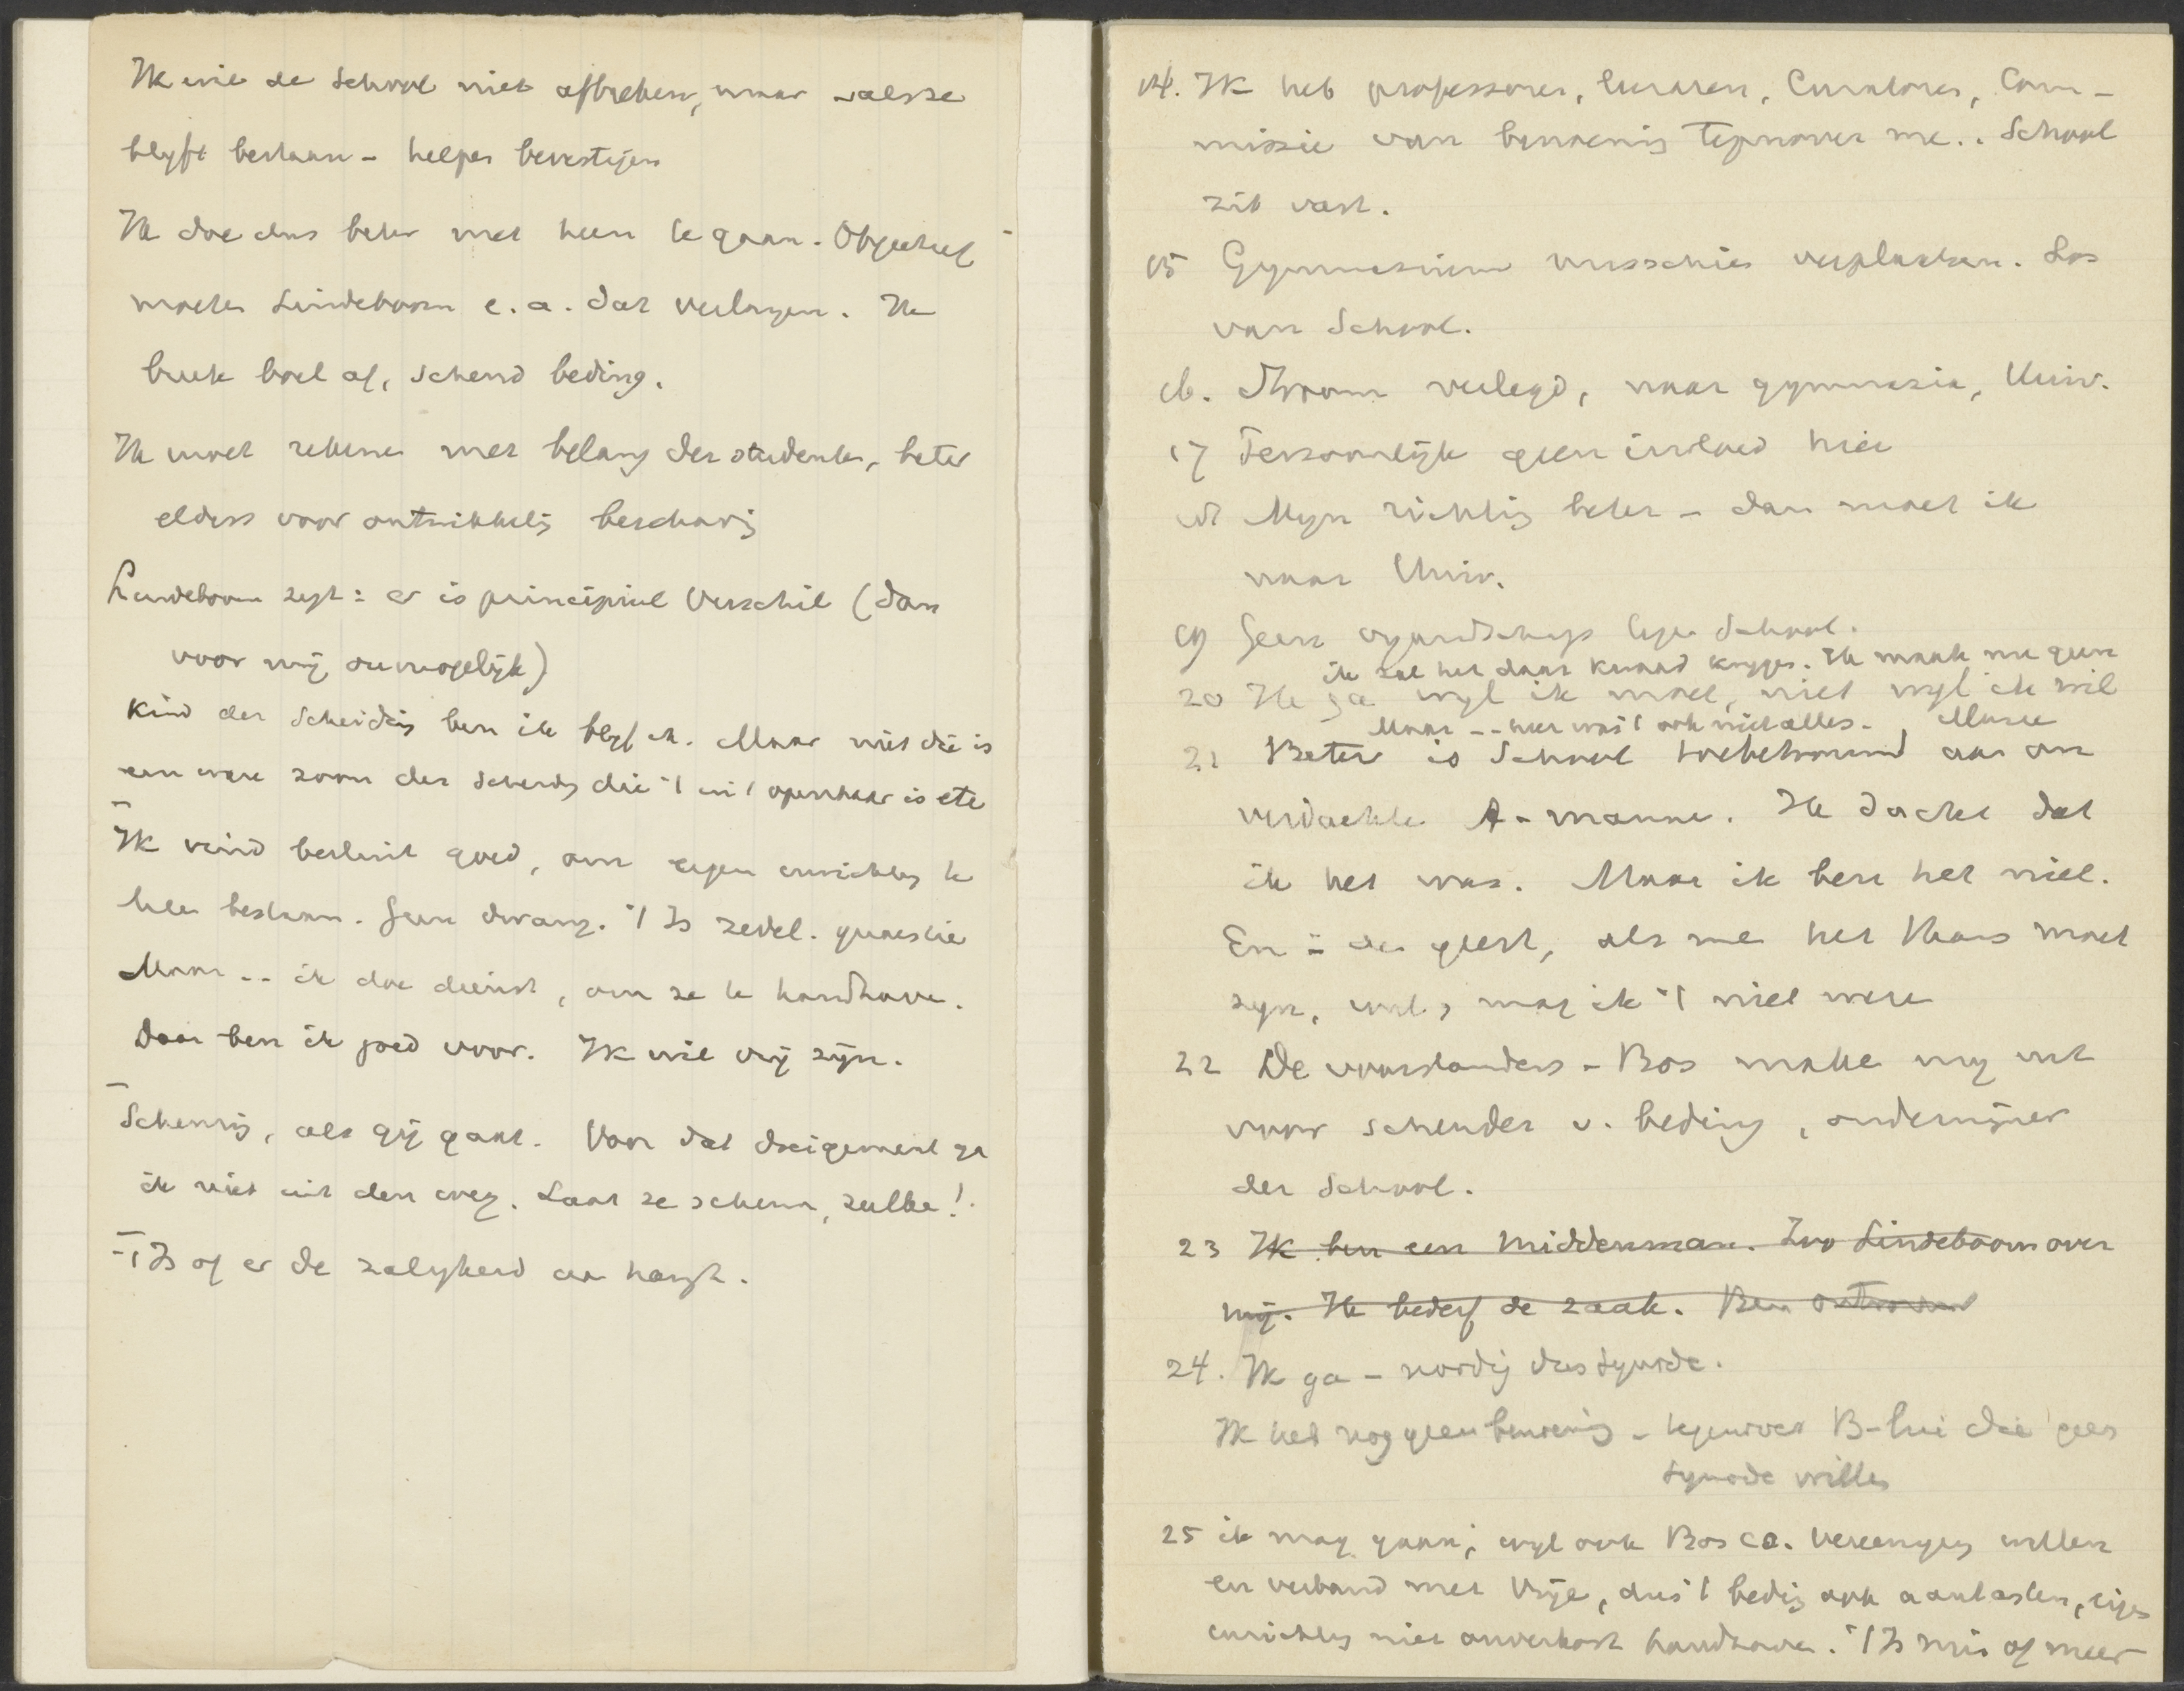 Ik wil de School niet afbreken, maar - als ze
blyft bestaan - helpen bevestigen
Ik doe dus beter met heen te gaan. Objectief
moeten Lindeboom e.a. dat verlangen. Ik
breek boel af, schend beding.
Ik moet rekenen met belang der studenten, beter
elders voor ontwikkelig beschavig
Lindeboom zegt: er is principieel verschil (dan
voor mij onmogelijk)
Kind der Scheidig ben ik blyf ik. Maar niet die is
een ware zoon der Scheidg die 't in 't openbaar is etc
Ik vind besluit goed, om eigen inrichtg te
laten bestaan. Geen dwang. 't Is zedel. quaestie
Maar -- ik doe dienst, om ze te handhaven.
Daar ben ik goed voor. Ik wil vrij zijn.
Scheurig, als gij gaat. Voor dat dreigement ga
ik niet uit den weg. Laat ze scheuren, zulke!
't Is of er de zaligheid aan hangt.
14. Ik heb professoren, leeraren, Curatoren, Com-
missie van benoemig tegenover me.. School
zit vast.
15 Gymnasium misschien verplaatsen. Los
van School.
16. Stroom verlegd, naar gymnasia, Univ.
17 Persoonlijk geen invloed hier
18 Myn richtig beter - dan moet ik
naar Univ.
19 Geen vyandschap tegen School.
ik zal het daar kwaad krygen. Ik maak me geen
20 Ik ga wyl ik moet, niet wyl ik wil
Maar -- hier was 't ook niet alles.
21 Beter is School toebetrouwd aan on
verdachte A-mannen. Ik dacht dat
ik het was. Maar ik ben het niet.
En in den geest, als men het thans moet
zyn, mag ik 't niet weze
22 De voorstanders - Bos maken my uit
voor schender v. beding, ondermijner
der School.
23 Ik ben een middenman. Zoo Lindeboom over
mij. Ik bederf de zaak. Ben ontrouw
24. Ik ga - noodig dus Synode.
Ik heb nog geen benoemig - tegenover B-lui die geen
Synode willen
25 ik mag gaan, wyl ook Bos c.s. vereenigg willen
en verband met Vrije, dus 't bedig ook aantasten, eigen
inrichtg niet onverkort handhaven. 't Is min of meer